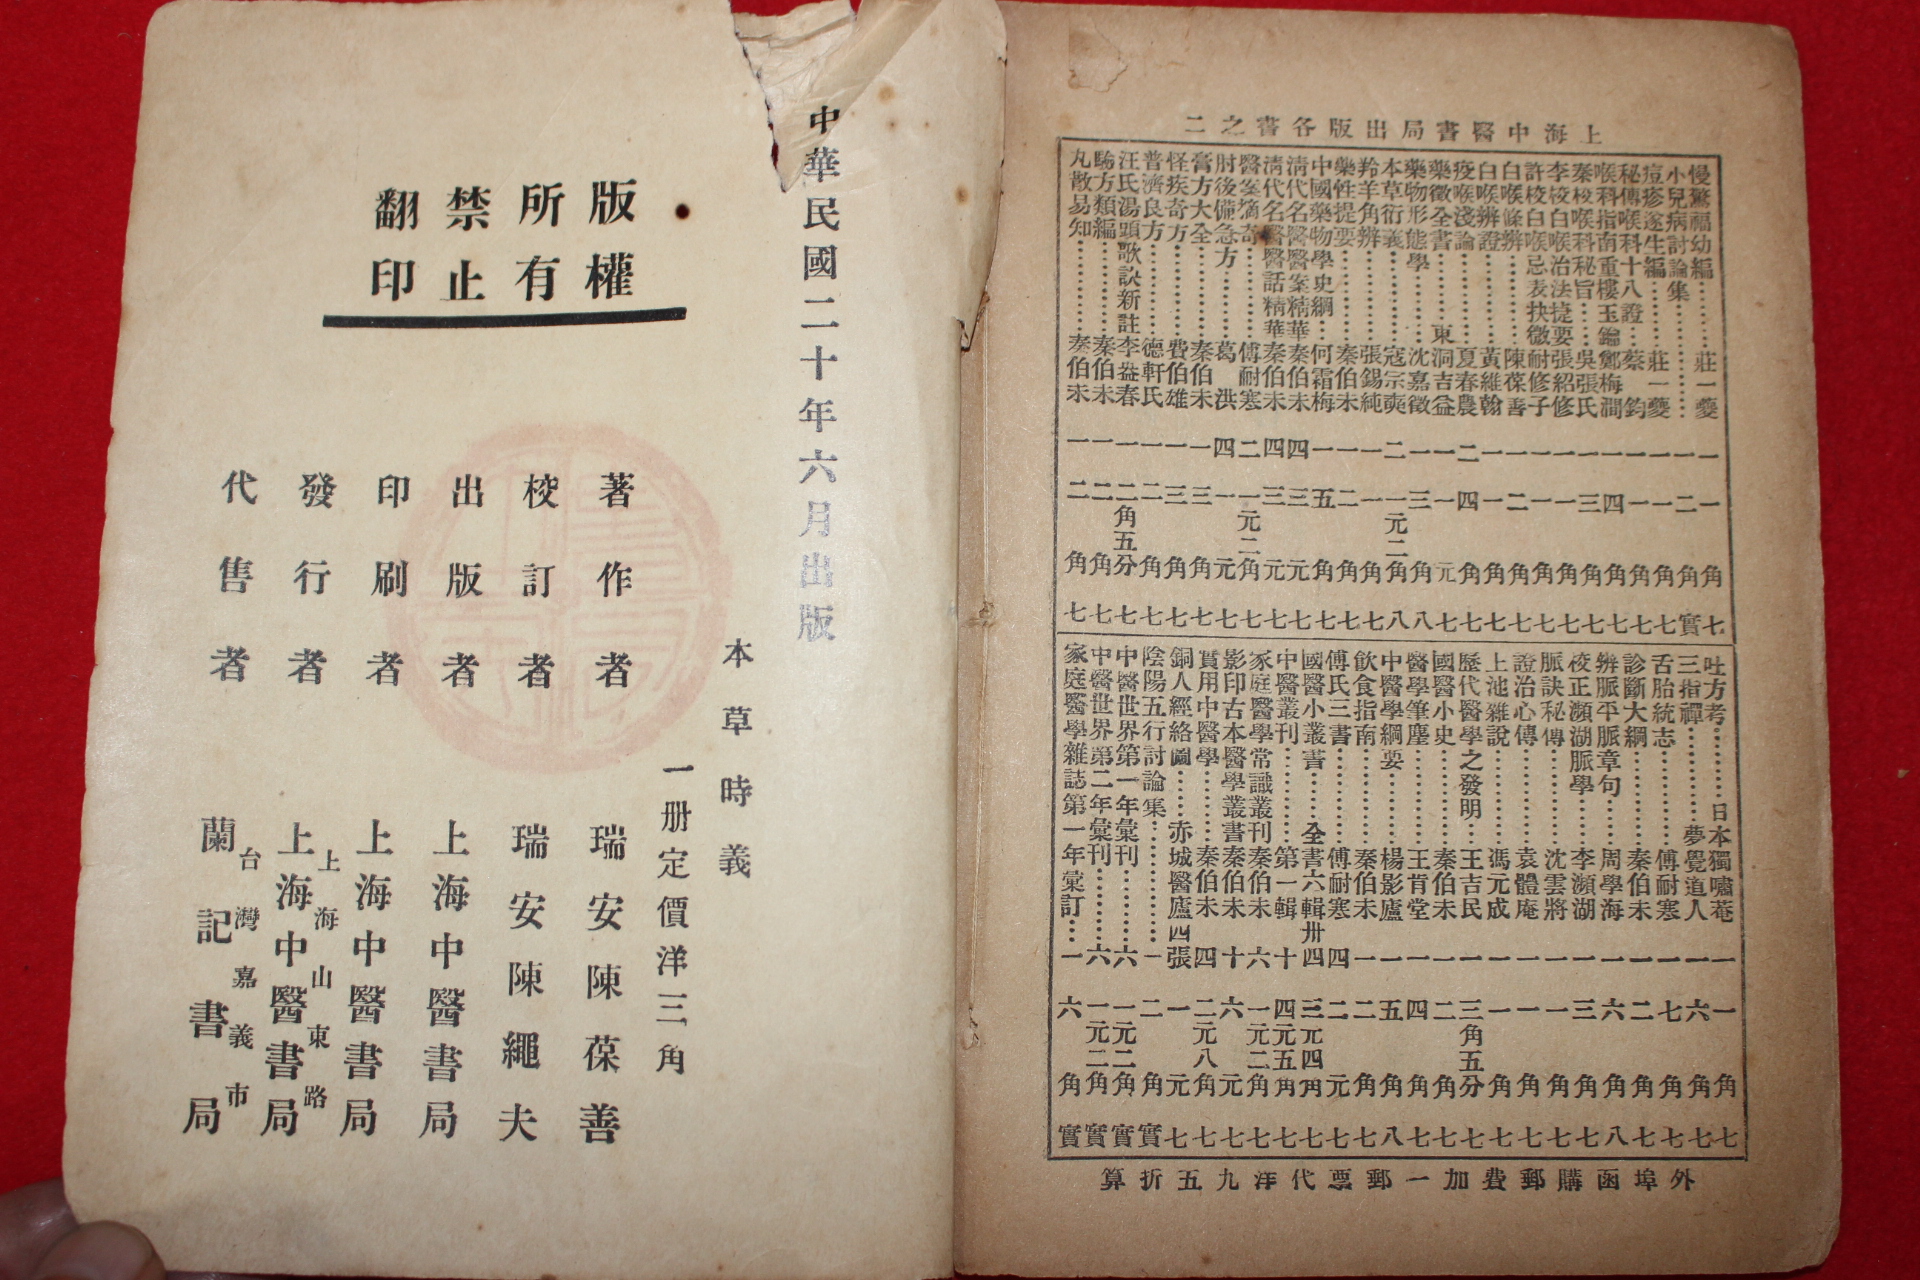 上海中醫書局出版各書之二
慢驚福幼編……莊一夔 一 一角 七
小兒病討論集…… 一 二角 實
痘疹遂生編……莊一夔 一 一角 七
秘傳喉科十八證…蔡鈞 一 一角 七
喉科指南重樓玉鑰鄭梅澗 一 四角 七
秦校喉科秘旨…吳張氏 一 三角 七
李校白喉治法捷要張紹修 一 一角 七
許校白喉忌表抉微耐修子 一 一角 七
白喉條辨……陳葆善 一 二角 七
白喉辨證……黃維翰 一 一角 七
疫喉淺論……夏春農 二 四角 七
藥徵全書……東洞吉益 一 一元 七
藥物形態學……沈嘉徵 一 三角 八
本草衍義……寇宗奭 二 一元二角 八
羚羊角辨……張錫純 一 一角 七
藥性提要……秦伯未 一 二角 七
中國藥物學史綱…何霜梅 一 五角 七
清代名醫醫案精華秦伯未 四 三元 七
清代名醫醫話精華秦伯未 四 三元 七
醫案摘奇……傅耐寒 二 一元二角 七
肘後備急方……葛洪 四 一元 七
膏方大全……秦伯未 一 三角 七
怪疾奇方……費伯雄 一 三角 七
普濟良方……德軒氏 一 二角 七
汪氏湯頭歌訣新註李盎春 一 二角五分 七
驗方類編……秦伯未 一 二角 七
丸散易知……秦伯未 一 二角 七
吐方考……日本獨嘯菴 一 一角 七
三指禪……夢覺道人 一 六角 七
舌胎統志……傅耐寒 一 七角 七
診斷大綱……秦伯未 一 二角 七
辨脈平脈章句…周學海 一 六角 八
校正瀕湖脈學…李瀕湖 一 三角 七
脈訣秘傳……沈雲將 一 一角 七
證治心傳……袁體庵 一 一角 七
上池雜說……馮元成 一 一角 七
歷代醫學之發明…王吉民 一 三角五分 七
國醫小史……秦伯未 一 二角 七
醫學筆塵……王肯堂 一 四角 七
中醫學綱要……楊影廬 一 五角 八
飲食指南……秦伯未 一 二角 七
傅氏三書……傅耐寒 四 二元 七
國醫小叢書…全書六輯卅四 三元四角 七
中醫叢刊……第一輯 十 四元五角 七
家庭醫學常識叢刊秦伯未 六 一元二角 七
影印古本醫學叢書秦伯未 十 六元 七
實用中醫學……秦伯未 四 二元八角 七
銅人經絡圖……赤城醫廬 四張 一元 七
陰陽五行討論集…… 一 二角 實
中醫世界第一年彙刊…… 六 一元二角 實
中醫世界第二年彙刊…… 六 一元二角 實
家庭醫學雜誌第一年彙訂… 一 六角 實
外埠函購郵費加一郵票代洋九五折算
中華民國二十年六月出版
版權所有
禁止翻印
本草時義
一册定價洋三角
著作者 瑞安陳葆善
校訂者 瑞安陳繩夫
出版者 上海中醫書局
印刷者 上海中醫書局
發行者 上海山東路 上海中醫書局
代售者 台灣嘉義市 蘭記書局